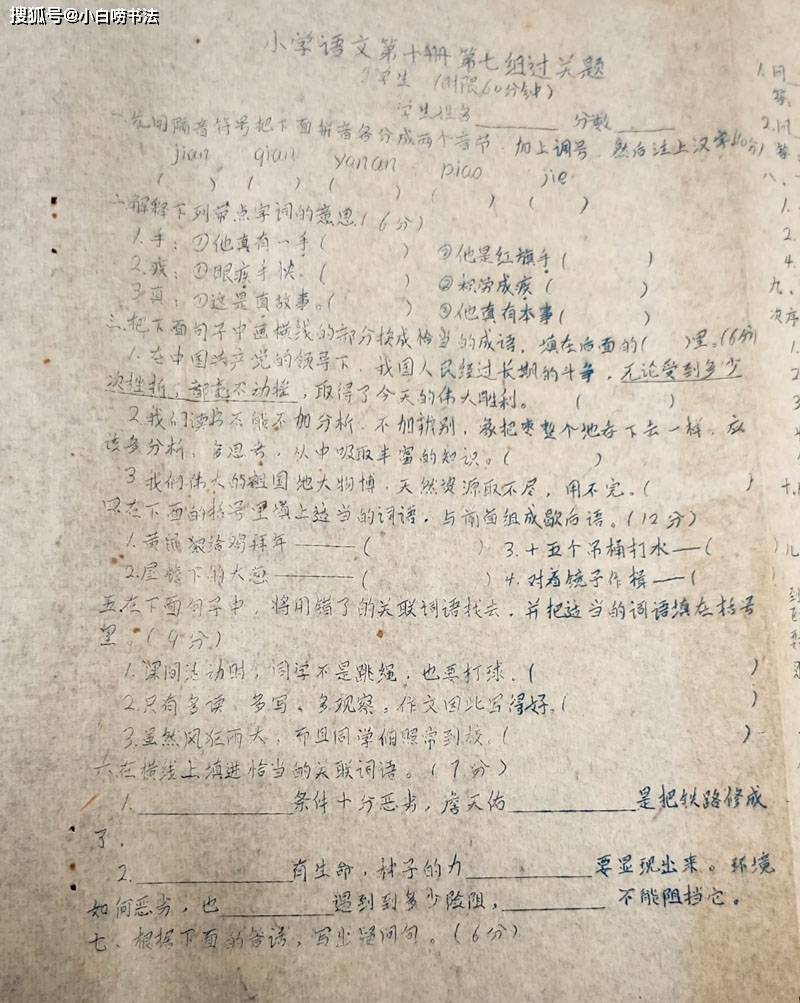 搜狐号@小白唠书法
小学语文第十册第七组过关题
学生 (时限60分钟)
学生姓名 分数
一、先用隔音符号把下面拼音各分成两个音节,加上调号,然后注上汉字(10分)
jian qian yanan piao jie
( ) ( ) ( ) ( ) ( )
二、解释下列带点字词的意思(6分)
1.手:①他真有一手( ) ②他是红旗手( )
2.疾:①眼疾手快。( ) ②积劳成疾( )
3.真:①这是真故事。( ) ②他真有本事( )
三、把下面句子中画横线的部分换成恰当的成语,填在后面的( )里。(6分)
1.在中国共产党的领导下,我国人民经过长期的斗争,无论受到多少
次挫折,都毫不动摇,取得了今天的伟大胜利。( )
2.我们读书不能不加分析、不加辨别,象把枣整个地吞下去一样,应
该多分析、多思考,从中吸取丰富的知识。( )
3.我们伟大的祖国地大物博,天然资源取不尽,用不完。( )
四、在下面的括号里填上适当的词语,与前面组成歇后语。(12分)
1.黄鼠狼给鸡拜年——( ) 3.十五个吊桶打水—( )
2.屋檐下的大葱——( ) 4.对着镜子作揖—( )
五、在下面句子中,将用错了的关联词语找去,并把适当的词语填在括号
里。(9分)
1.课间活动时,同学不是跳绳,也要打球.( )
2.只有多读、多写、多观察,作文因此写得好.( )
3.虽然风狂雨大,而且同学们照常到校.( )
六、在横线上填进恰当的关联词语。(7分)
1.条件十分恶劣,詹天佑 是把铁路修成
了.
2.有生命,种子的力 要显现出来。环境
如何恶劣,也 遇到到多少险阻, 不能阻挡它。
七、根据下面的答话,写出疑问句。(6分)
1.问
答:
2.问
答
八、
1.
2.
4.
九、
次序
1.
2
3
十、
儿
到